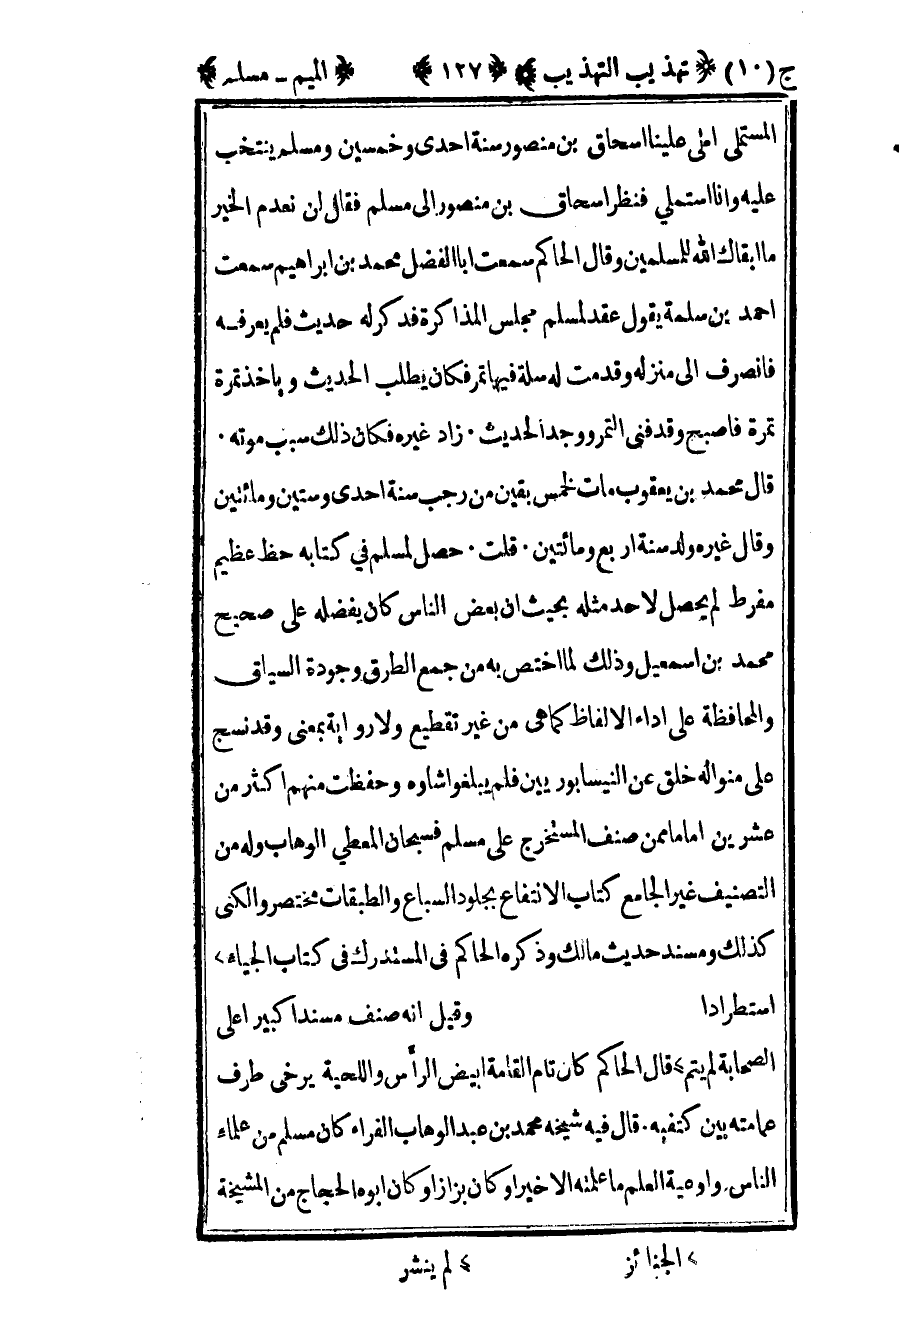 ج (١٠) ﴿ تهذيب التهذيب ﴾ ﴿ ١٢٧ ﴾ ﴿ الميم - مسلم ﴾
المستملي املى علينا اسحاق بن منصور سنة احدى وخمسين ومسلم ينتخب
عليه وانا استملي فنظر اسحاق بن منصور الى مسلم فقال لن نعدم الخير
ما ابقاك الله للمسلمين وقال الحاكم سمعت ابا الفضل محمد بن ابراهيم سمعت
احمد بن سلمة يقول عقد لمسلم مجلس المذاكرة فذكر له حديث فلم يعرفه
فانصرف الى منزله وقدمت له سلة فيها تمر فكان يطلب الحديث وياخذ تمرة
تمرة فاصبح وقد فنى التمر ووجد الحديث · زاد غيره فكان ذلك سبب موته ·
قال محمد بن يعقوب مات لخمس بقين من رجب سنة احدى وستين ومائتين
وقال غيره ولد سنة اربع ومائتين · قلت · حصل لمسلم في كتابه حظ عظيم
مفرط لم يحصل لاحد مثله بحيث ان بعض الناس كان يفضله على صحيح
محمد بن اسمعيل وذلك لما اختص به من جمع الطرق وجودة السياق
والمحافظة على اداء الالفاظ كما هى من غير تقطيع ولا رواية بمعنى وقد نسج
على منواله خلق عن النيسابوريين فلم يبلغوا شاوه وحفظت منهم اكثر من
عشرين اماما ممن صنف المستخرج على مسلم فسبحان المعطي الوهاب وله من
التصنيف غير الجامع كتاب الانتفاع بجلود السباع والطبقات مختصر والكنى
كذلك ومسند حديث مالك وذكره الحاكم فى المستدرك فى كتاب الجياء >
استطرادا وقيل انه صنف مسندا كبيرا على
الصحابة لم يتم > قال الحاكم كان تام القامة ابيض الرأس واللحية يرخى طرف
عمامته بين كتفيه · قال فيه شيخه محمد بن عبد الوهاب الفراء كان مسلم من علماء
الناس واوعية العلم ما علمته الا خيرا وكان بزازا وكان ابوه الحجاج من المشيخة
> الجنائز > لم ينشر